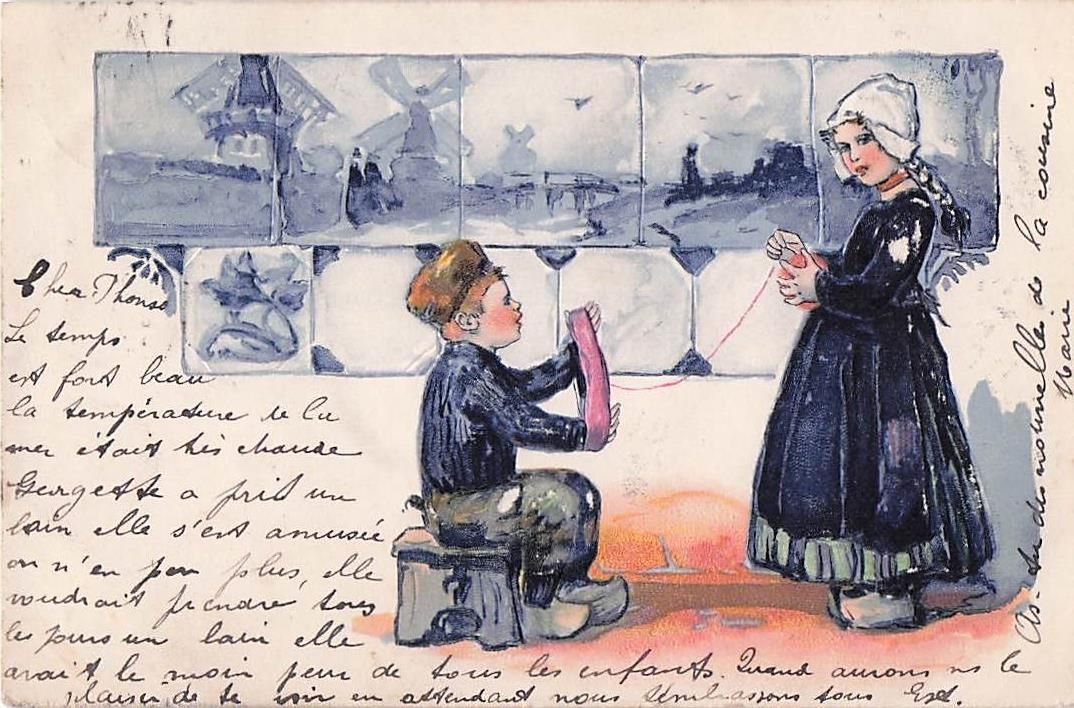 Cher Thonso
Le temps
est fort beau
la température de la
mer était très chaude
Georgette a prit un
bain elle s'est amusée
on n'en peu plus, elle
voudrait prendre tous
les jours un bain elle
avait le moin peur de tous les enfants. Quand aurons ns le
plaisir de te voir en attendant nous t'embrassons tous
As-tu des nouvelles de la cousine
Marie